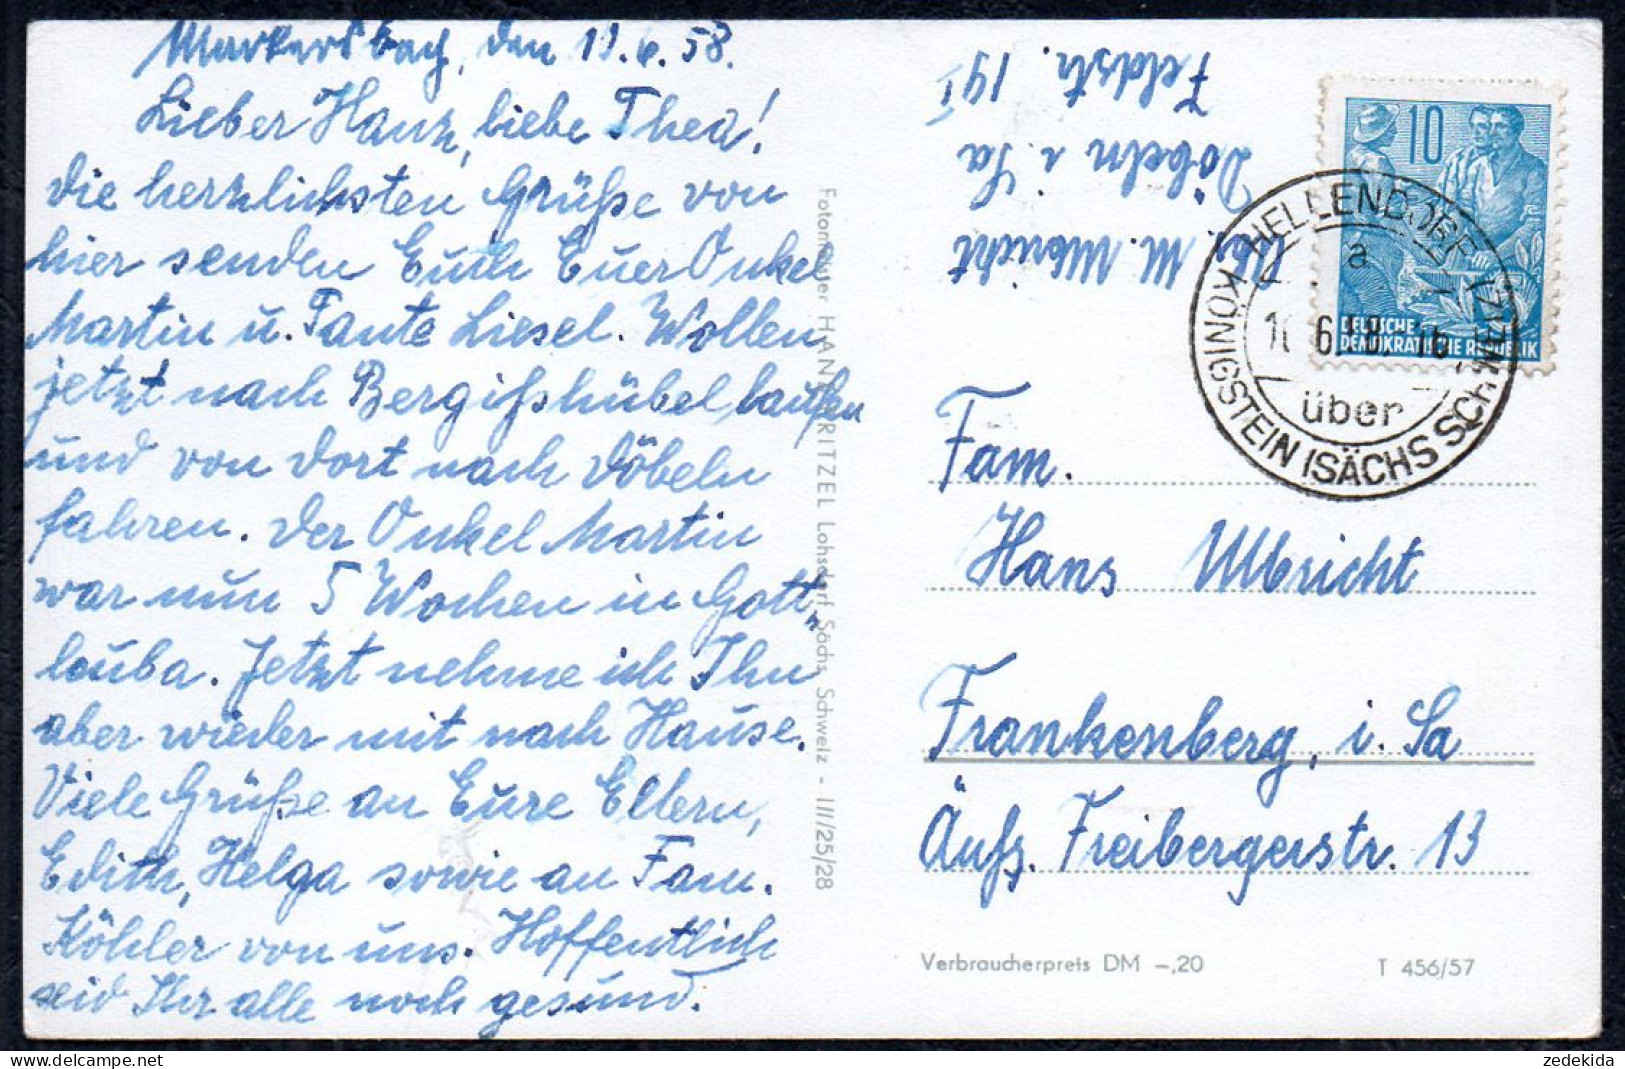 Markersbach, den 19.6.58.
Lieber Hans, liebe Thea!
die herzlichsten Grüße von
hier senden Euch Euer Onkel
Martin u. Tante Liesel. Wollen
jetzt nach Bergißhübel laufen
und von dort nach Döbeln
fahren. Der Onkel Martin
war nun 5 Wochen in Gott„
leuba. Jetzt nehme ich Ihn
aber wieder mit nach Hause.
Viele Grüße an Eure Eltern,
Edith, Helga sowie an Fam.
Köhler von uns. Hoffentlich
seid Ihr alle noch gesund.
Fotomeister HANS RITZEL Lohsdorf Sächs. Schweiz - III/25/28
Abs. M. Ulbricht
Döbeln i. Sa
Feldstr. 19 I
10
DEUTSCHE
DEMOKRATISCHE REPUBLIK
HELLENDORF
a
über
KÖNIGSTEIN (SÄCHS SCHWEIZ)
Fam.
Hans Ulbricht
Frankenberg, i. Sa
Äuß. Freibergerstr. 13
Verbraucherpreis DM –,20
T 456/57
zedekida